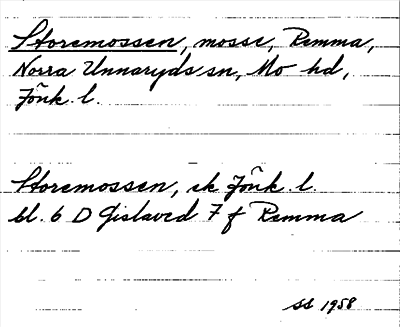 Storemossen, mosse, Remma,
Norra Unnaryds sn, Mo hd,
Jönk. l.
Storemossen, ek Jönk. l.
bl. 6 D Gislaved 7 f Remma
SS 1958